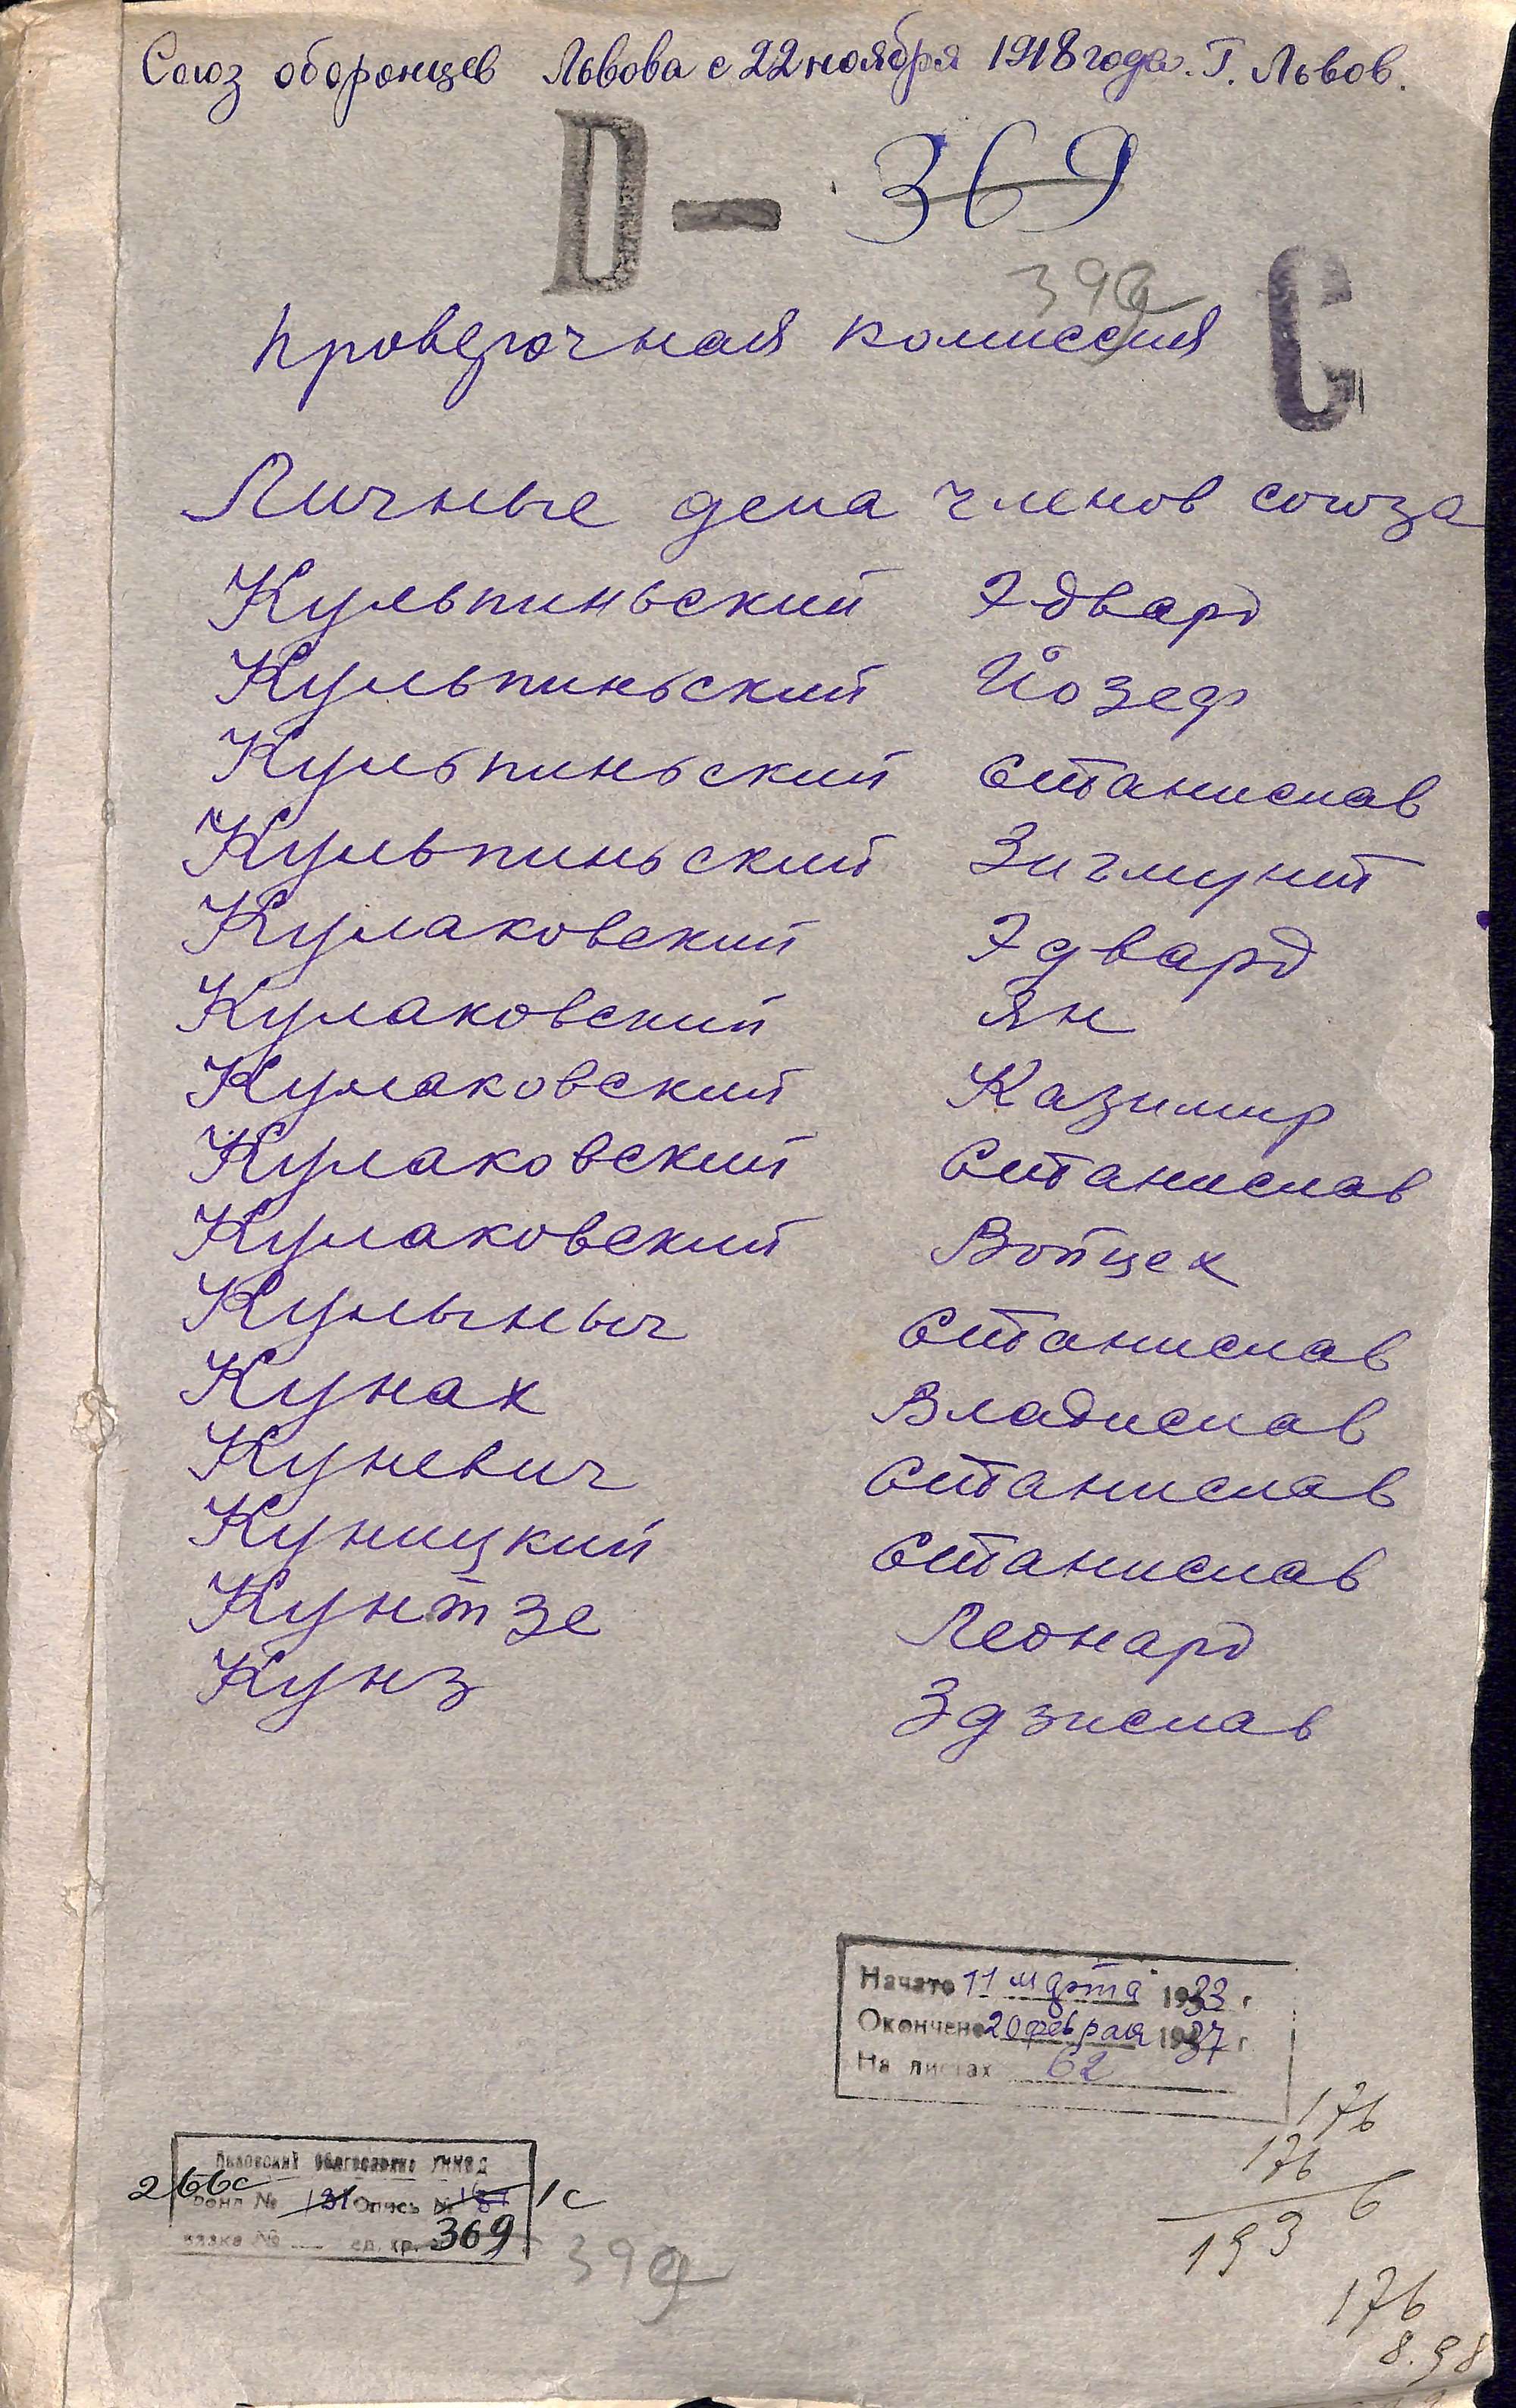 Союз оборонцев Львова с 22 ноября 1918 года. Г. Львов.
D — 369
399
C
проверочная комиссия
Личные дела членов союза
Кульпиньский Эдвард
Кульпиньский Йозеф
Кульпиньский Станислав
Кульпиньский Зигмунт
Кулаковский Эдвард
Кулаковский Ян
Кулаковский Казимир
Кулаковский Станислав
Кулаковский Войцех
Кулыныч Станислав
Кунах Владислав
Куневич Станислав
Куницкий Станислав
Кунтзе Леонард
Кунз Здзислав
Начато 11 марта 1933 г.
Окончено 20 февраля 1937 г.
На листах 62
176
176
6
193
176
8.98
Львовский Облгосархив УНКВД
266с Фонд № 131 Опись № 1с
вязка № ед. хр. 369
399